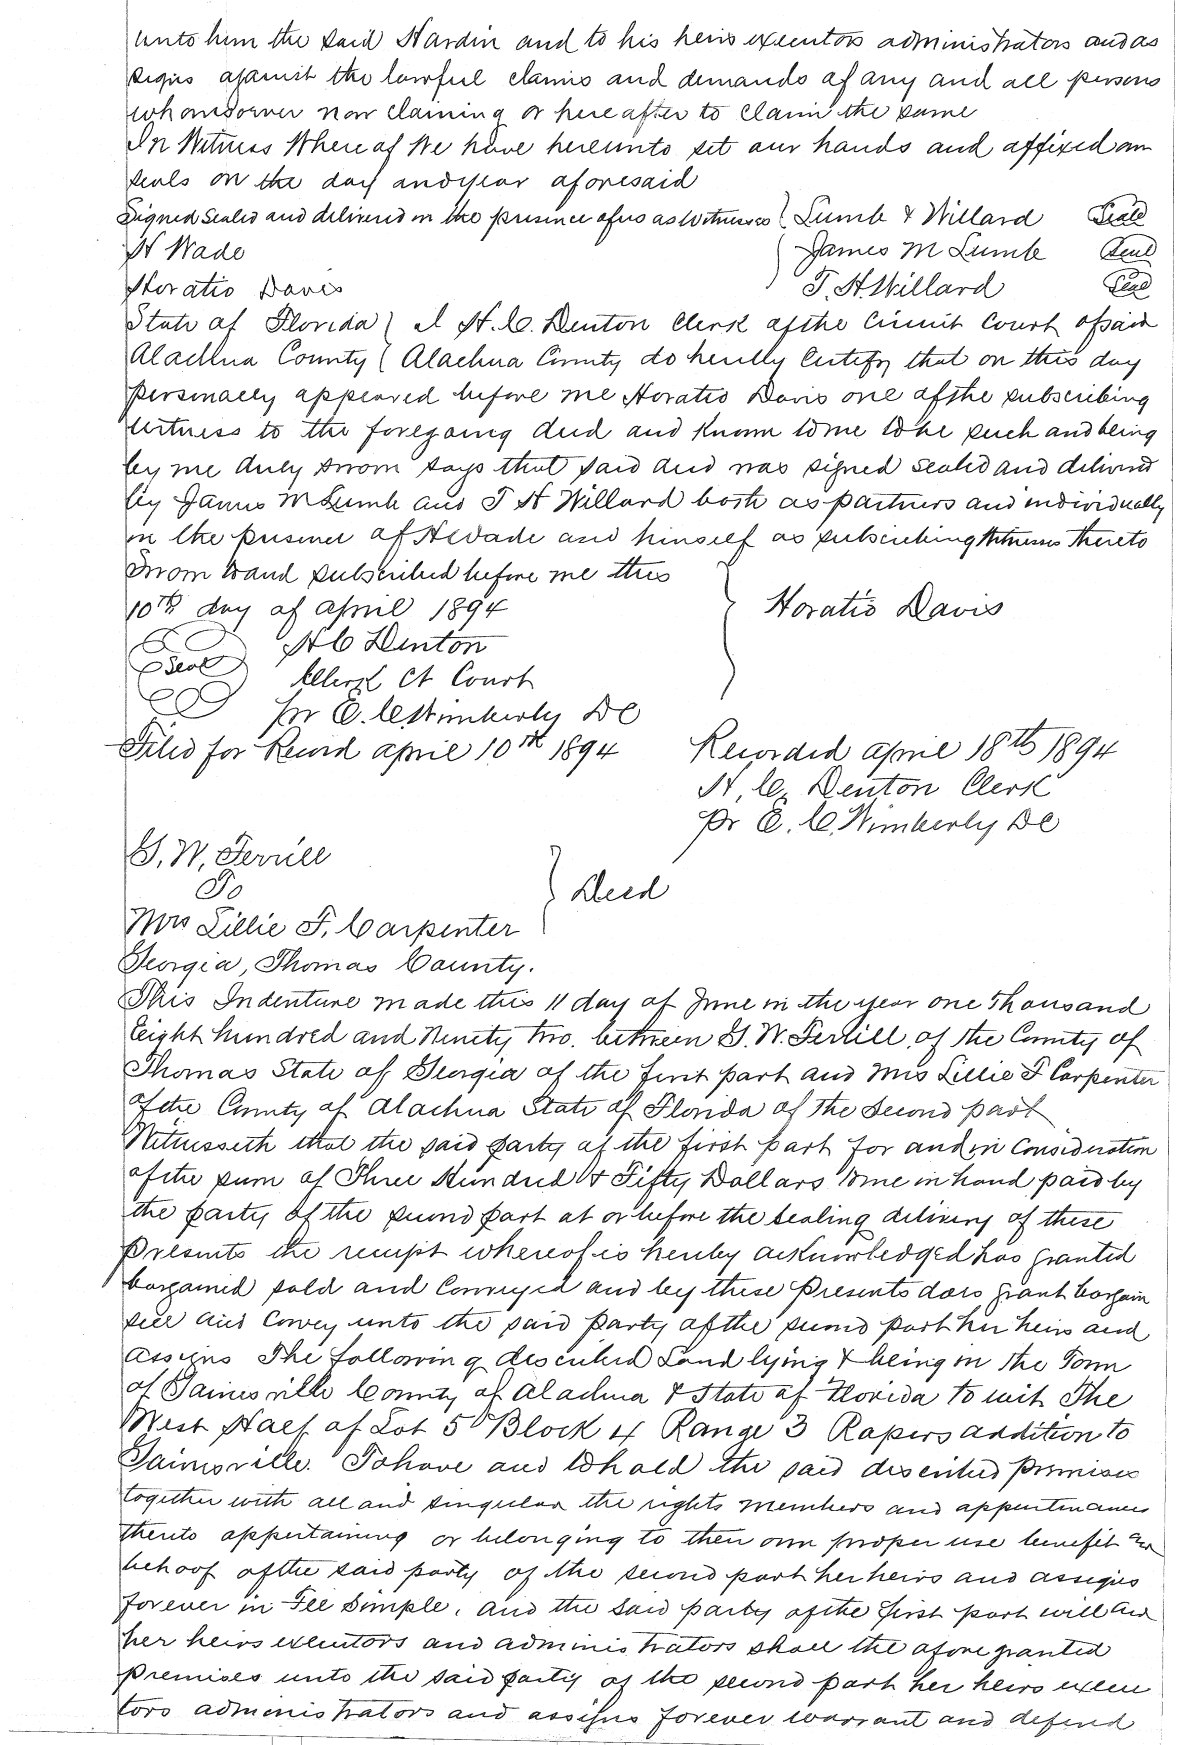 unto him the said Hardin and to his heirs executors administrators and as
signs against the lawful claims and demands of any and all persons
whomsoever now claiming or hereafter to claim the same
In Witness Whereof We have hereunto set our hands and affixed our
seals on the day and year aforesaid
Signed Sealed and delivered in the presence of us as Witnesses { Lumb & Willard Seal
H Wade James M Lumb Seal
Horatio Davis T. H. Willard Seal
State of Florida } I H. C. Denton Clerk of the Circuit Court of said
Alachua County { Alachua County do hereby Certify that on this day
personally appeared before me Horatio Davis one of the subscribing
witness to the foregoing deed and known to me to be such and being
by me duly sworn says that said deed was signed sealed and delivered
by James M Lumb and T H Willard both as partners and individually
in the presence of H Wade and himself as subscribing Witnesses thereto
Sworn to and subscribed before me this
10th day of April 1894 } Horatio Davis
H C Denton
Seal Clerk Ct Court
pr E. C. Wimberly DC
Filed for Record April 10th 1894 Recorded April 18th 1894
H. C. Denton Clerk
Pr E. C. Wimberly DC
G. W. Ferrill
To } Deed
Mrs Lillie F. Carpenter
Georgia, Thomas County.
This Indenture made this 11 day of June in the year one Thousand
Eight hundred and Ninety two. between G. W. Ferrill, of the County of
Thomas State of Georgia of the first part and Mrs Lillie F Carpenter
of the County of Alachua State of Florida of the Second part
Witnesseth that the said party of the first part for and in consideration
of the sum of Three Hundred & Fifty Dollars to me in hand paid by
the party of the second part at or before the sealing delivery of these
Presents the receipt whereof is hereby acknowledged has granted
bargained sold and conveyed and by these Presents does grant bargain
sell and Convey unto the said party of the second part her heirs and
assigns The following described Land lying & being in the Town
of Gainesville County of Alachua & State of Florida to wit The
West Half of Lot 5 Block 4 Range 3 Rapers addition to
Gainesville. To have and to hold the said described Premises
together with all and singular the rights members and appurtenances
thereto appertaining or belonging to their own proper use benefit and
behoof of the said party of the second part her heirs and assigns
forever in Fee Simple. And the said party of the first part will and
her heirs executors and administrators shall the afore granted
premises unto the said party of the second part her heirs execu
tors administrators and assigns forever warrant and defend